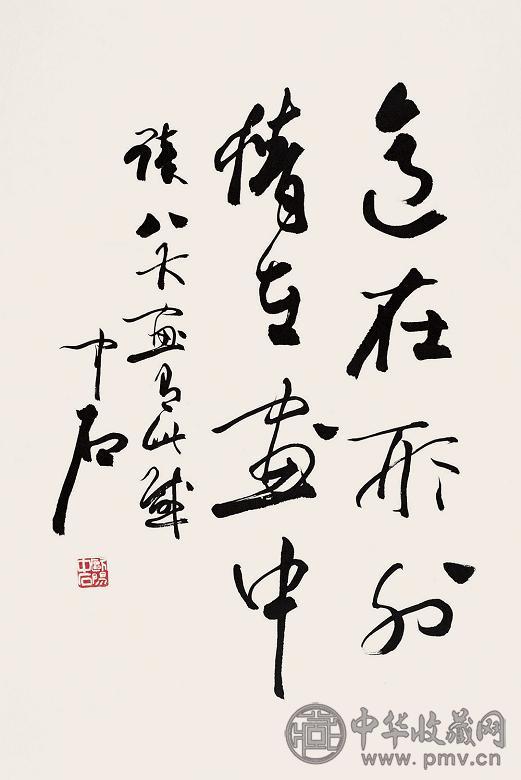 意在形外
情在畫中
讀八大畫有此感
中石
歐陽中石
中华收藏网
www.pmv.cn